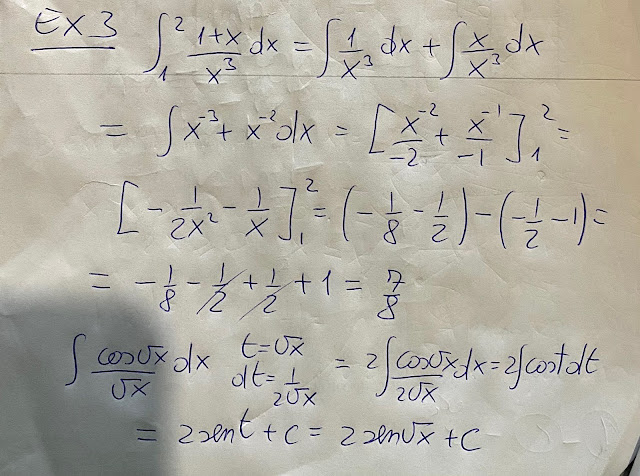 Ex 3 ∫₁² (1+x)/x³ dx = ∫ 1/x³ dx + ∫ x/x³ dx
= ∫ x⁻³ + x⁻² dx = [x⁻²/-2 + x⁻¹/-1]₁² =
[-1/(2x²) - 1/x]₁² = (-1/8 - 1/2) - (-1/2 - 1) =
= -1/8 - 1/2 + 1/2 + 1 = 7/8
∫ cos√x/√x dx t=√x dt=1/(2√x) = 2∫ cos√x/(2√x) dx = 2∫ cost dt
= 2 sent + c = 2 sen√x + c